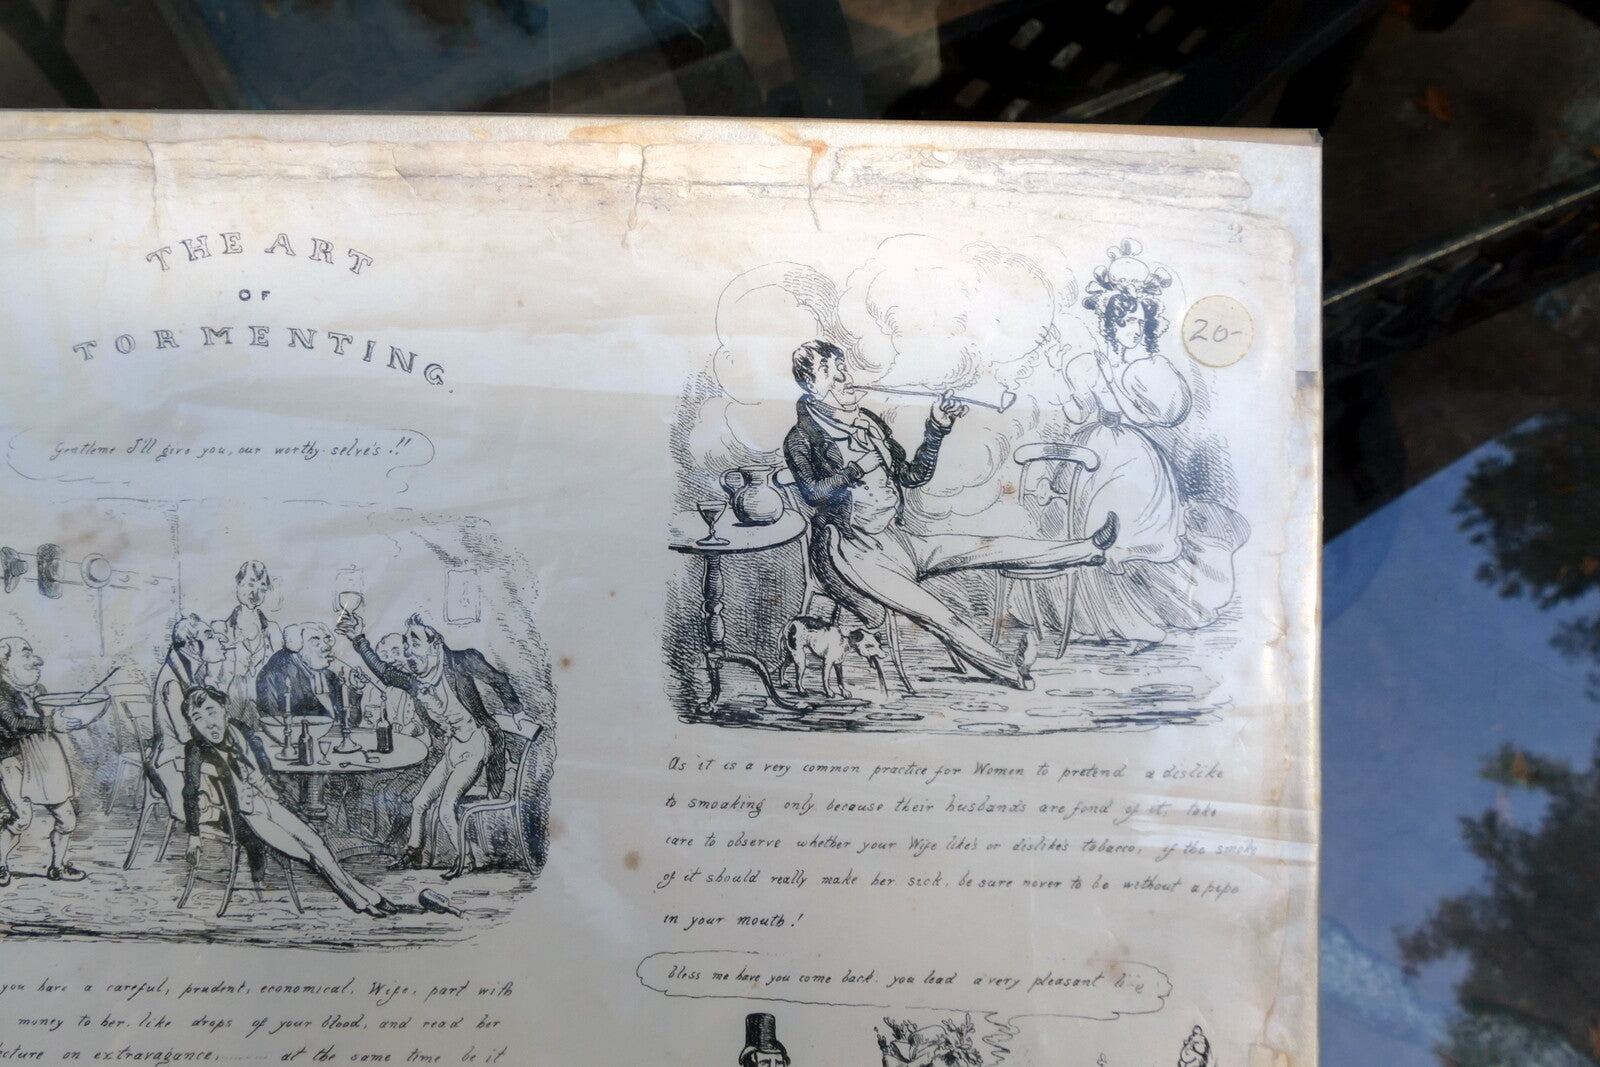 THE ART
OF
TORMENTING.
Gentleme I'll give you, our worthy selve's !!
you have a careful, prudent, economical, Wife, part with
money to her, like drops of your blood, and read her
lecture on extravagance, at the same time be it
2
20-
As it is a very common practice for Women to pretend a dislike
to smoaking only because their husbands are fond of it, take
care to observe whether your Wife like's or dislike's tobacco, if the smoke
of it should really make her sick, be sure never to be without a pipe
in your mouth!
bless me have you come back. you lead a very pleasant